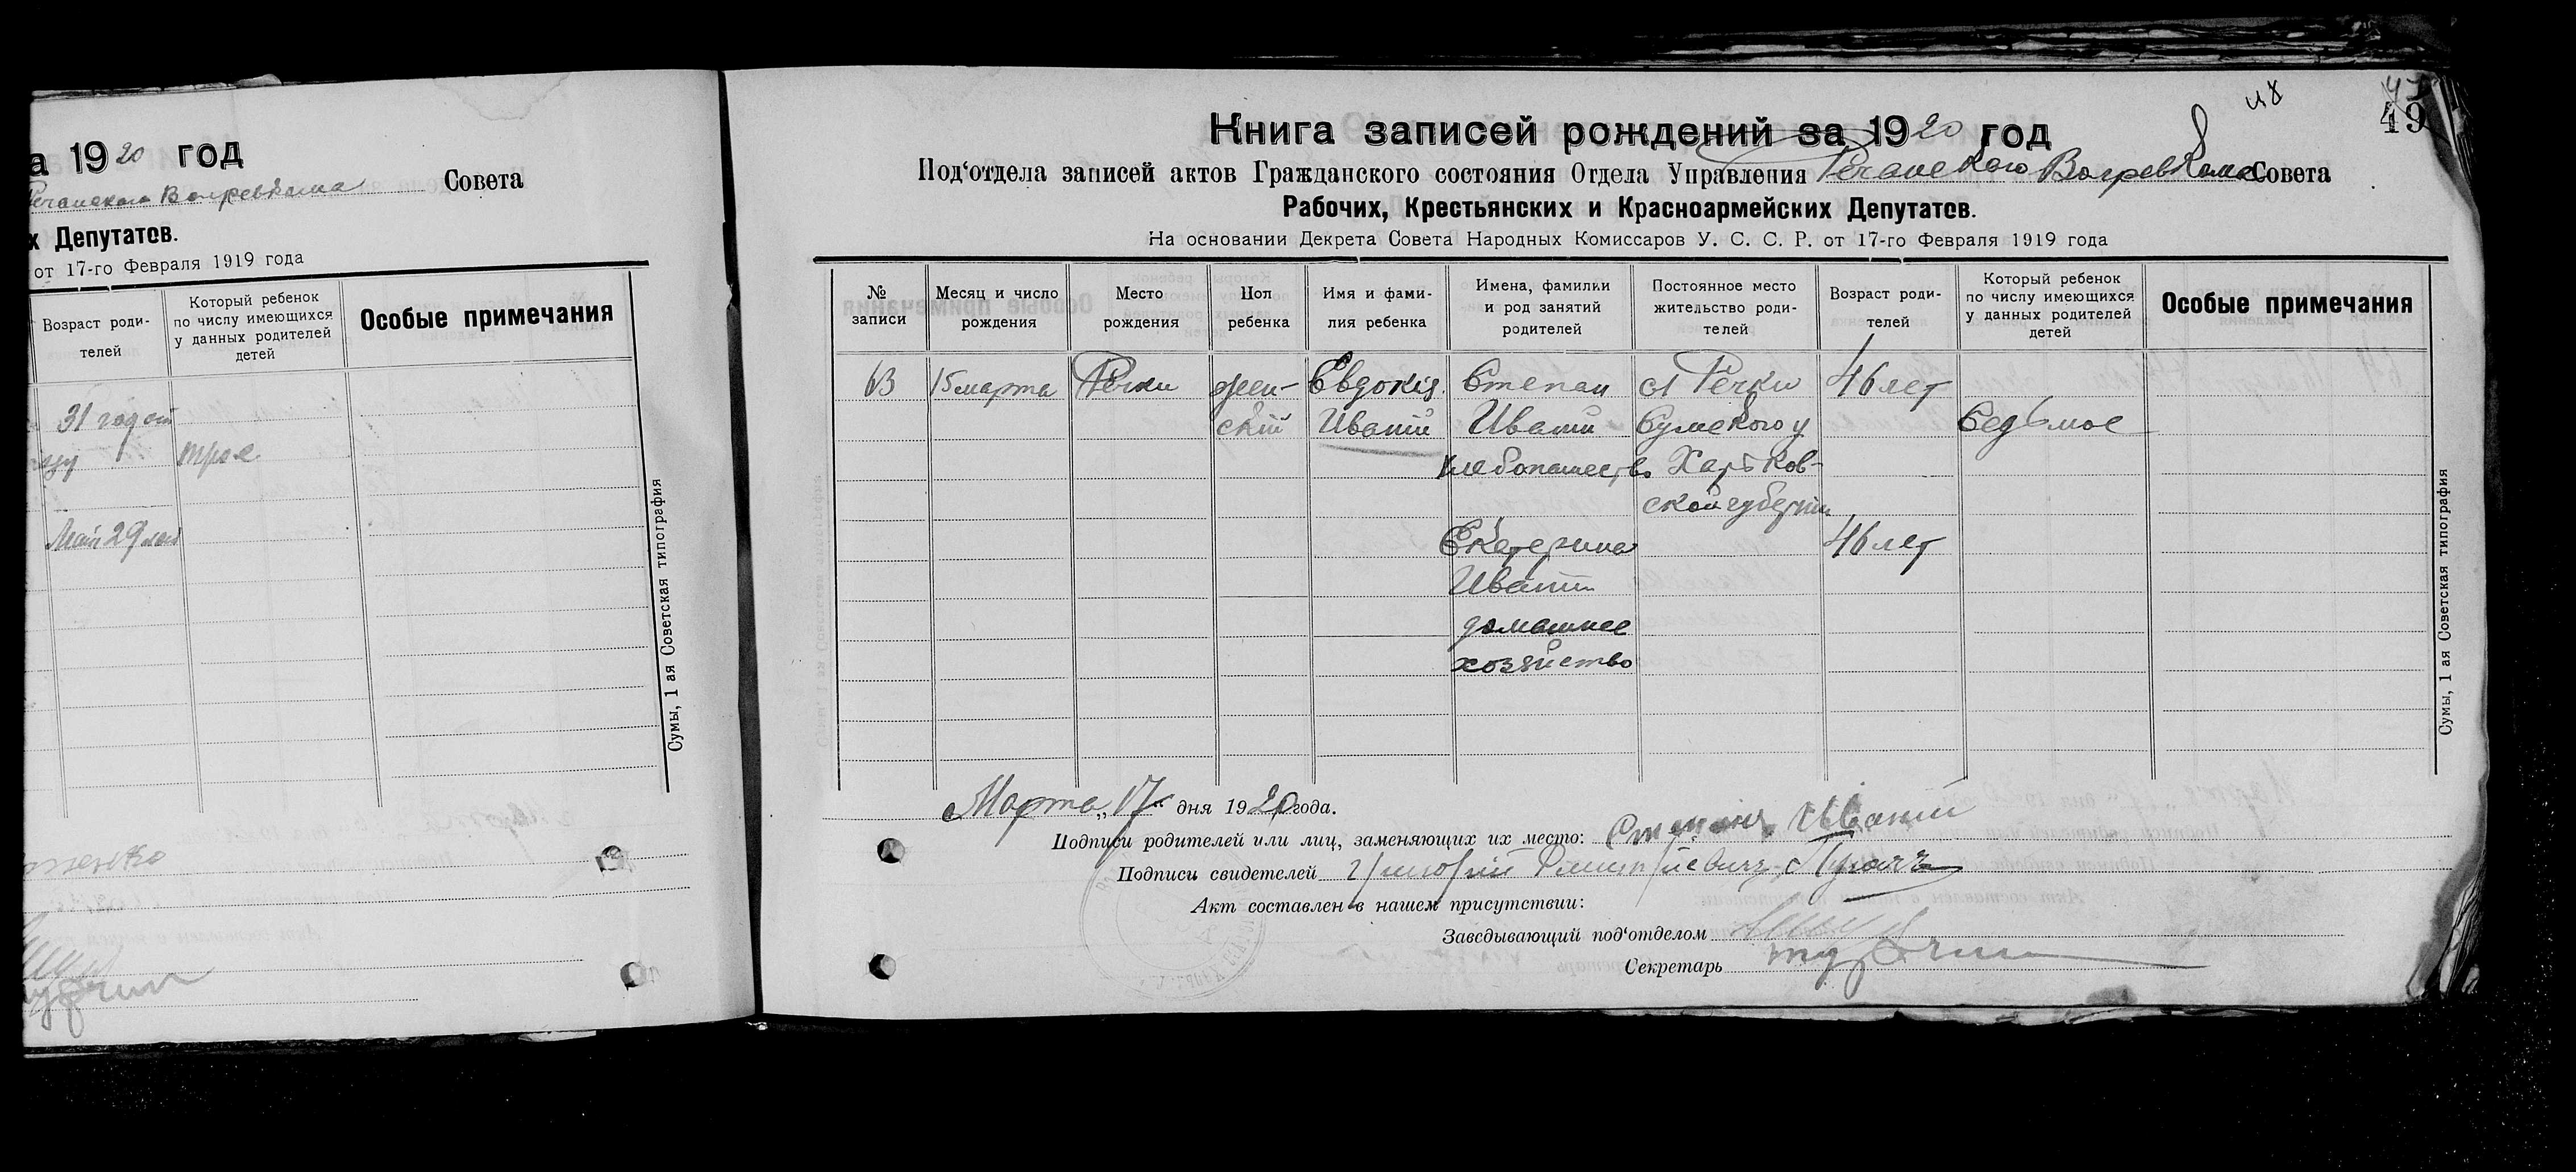 а 1920 год
Речанского Волревкома Совета
х Депутатов.
от 17-го Февраля 1919 года
Возраст роди-
телей
Который ребенок
по числу имеющихся
у данных родителей
детей
Особые примечания
31 год
трое
29 лет
Сумы, 1 ая Советская типография
48
49
Книга записей рождений за 1920 год
Под‘отдела записей актов Гражданского состояния Отдела Управления Речанского Волревкома Совета
Рабочих, Крестьянских и Красноармейских Депутатов.
На основании Декрета Совета Народных Комиссаров У. С. С. Р. от 17-го Февраля 1919 года
№
записи
Месяц и число
рождения
Место
рождения
Пол
ребенка
Имя и фами-
лия ребенка
Имена, фамилии
и род занятий
родителей
Постоянное место
жительство роди-
телей
Возраст роди-
телей
Который ребенок
по числу имеющихся
у данных родителей
детей
Особые примечания
63 15 марта Речки жен- Евдокия Степан сл Речки 46 лет
ский Иваній Иваній Сумского у Седьмое
хлебопашество Харьков-
ской губернии
Екатерина 46 лет
Иваній
домашнее
хозяйство
Марта „17“ дня 1920 года.
Подписи родителей или лиц, заменяющих их место: Степанъ Иваній
Подписи свидетелей Григорий Пугачъ
Акт составлен в нашем присутствии:
Заведывающий под‘отделом
Секретарь
Сумы, 1 ая Советская типография